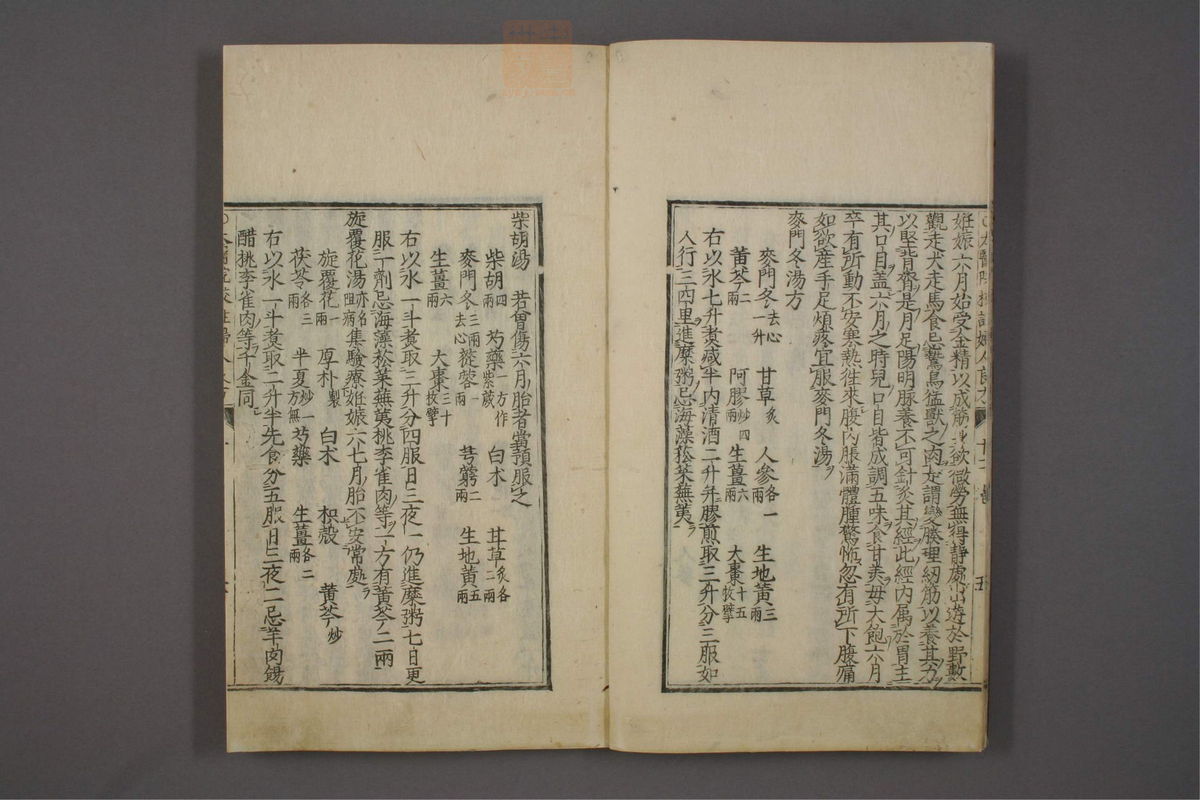 妊娠六月始受金精以成筋身欲微勞無得靜處出遊於野數
觀走犬走馬食忌鷙鳥猛獸之肉是謂變腠理紉筋以養其力
以堅背膂是月足陽明脉養不可針灸其經此經内属於胃主
其口目盖六月之時兒口目皆成調五味食甘美毋大飽六月
卒有所動不安寒熱往來腹内脹滿體腫驚怖忽有所下腹痛
如欲産手足煩疼宜服麥門冬湯
麥門冬湯方
麥門冬去心一升 甘草炙 人參各一兩 生地黄三
黄芩二兩 阿膠炒四兩 生薑六兩 大棗十五枚擘
右以水七升煮减半内清酒二升并膠煎取三升分三服如
人行三四里進糜粥忌海藻菘菜蕪荑
柴胡湯 若曾傷六月胎者當預服之
柴胡四兩 芍藥一方作紫葳 白术 甘草炙各二兩
麥門冬去心三兩 蓯蓉一兩 芎藭二兩 生地黄五兩
生薑六兩 大棗三十枚擘
右以水一斗煮取三升分四服日三夜一仍進糜粥七日更
服一劑忌海藻菘菜蕪荑桃李雀肉等一方有黄芩二兩
旋覆花湯亦名阻病 集驗療妊娠六七月胎不安常處
旋覆花一兩 厚朴製 白术 枳殼 黄芩炒
茯苓各三兩 半夏炒一方無 芍藥 生薑各二兩
右以水一斗煮取二升半先食分五服日三夜二忌羊肉餳
醋桃李雀肉等千金同